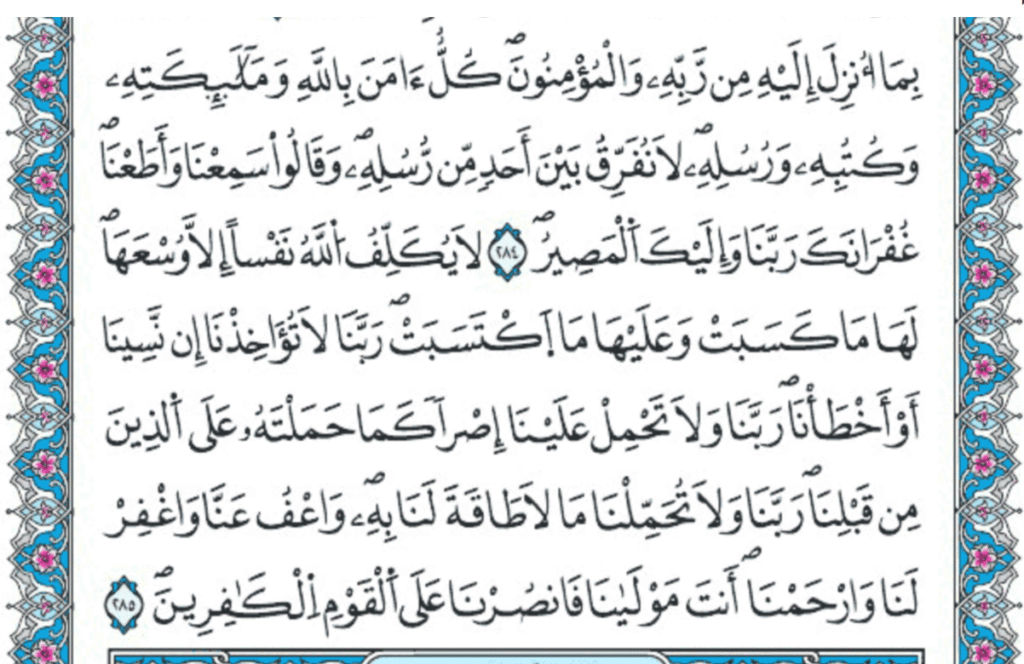 بِمَا أُنزِلَ إِلَيْهِ مِن رَّبِّهِۦ وَالْمُؤْمِنُونَۖ كُلٌّ ءَامَنَ بِاللَّهِ وَمَلَٰٓئِكَتِهِۦ
وَكُتُبِهِۦ وَرُسُلِهِۦۖ لَا نُفَرِّقُ بَيْنَ أَحَدٍ مِّن رُّسُلِهِۦۖ وَقَالُواْ سَمِعْنَا وَأَطَعْنَاۖ
غُفْرَانَكَ رَبَّنَا وَإِلَيْكَ اَ۬لْمَصِيرُۖ ٢٨٤ لَا يُكَلِّفُ اُ۬للَّهُ نَفْساً إِلَّا وُسْعَهَاۖ
لَهَا مَا كَسَبَتْ وَعَلَيْهَا مَا اَ۪كْتَسَبَتْۖ رَبَّنَا لَا تُؤَاخِذْنَا إِن نَّسِينَا
أَوْ أَخْطَأْنَاۖ رَبَّنَا وَلَا تَحْمِلْ عَلَيْنَا إِصْراً كَمَا حَمَلْتَهُۥ عَلَى اَ۬لَّذِينَ
مِن قَبْلِنَاۖ رَبَّنَا وَلَا تُحَمِّلْنَا مَا لَا طَاقَةَ لَنَا بِهِۦۖ وَاعْفُ عَنَّا وَاغْفِرْ
لَنَا وَارْحَمْنَاۖ أَنتَ مَوْلَىٰنَا فَانصُرْنَا عَلَى اَ۬لْقَوْمِ اِ۬لْكَٰفِرِينَۖ ٢٨٥